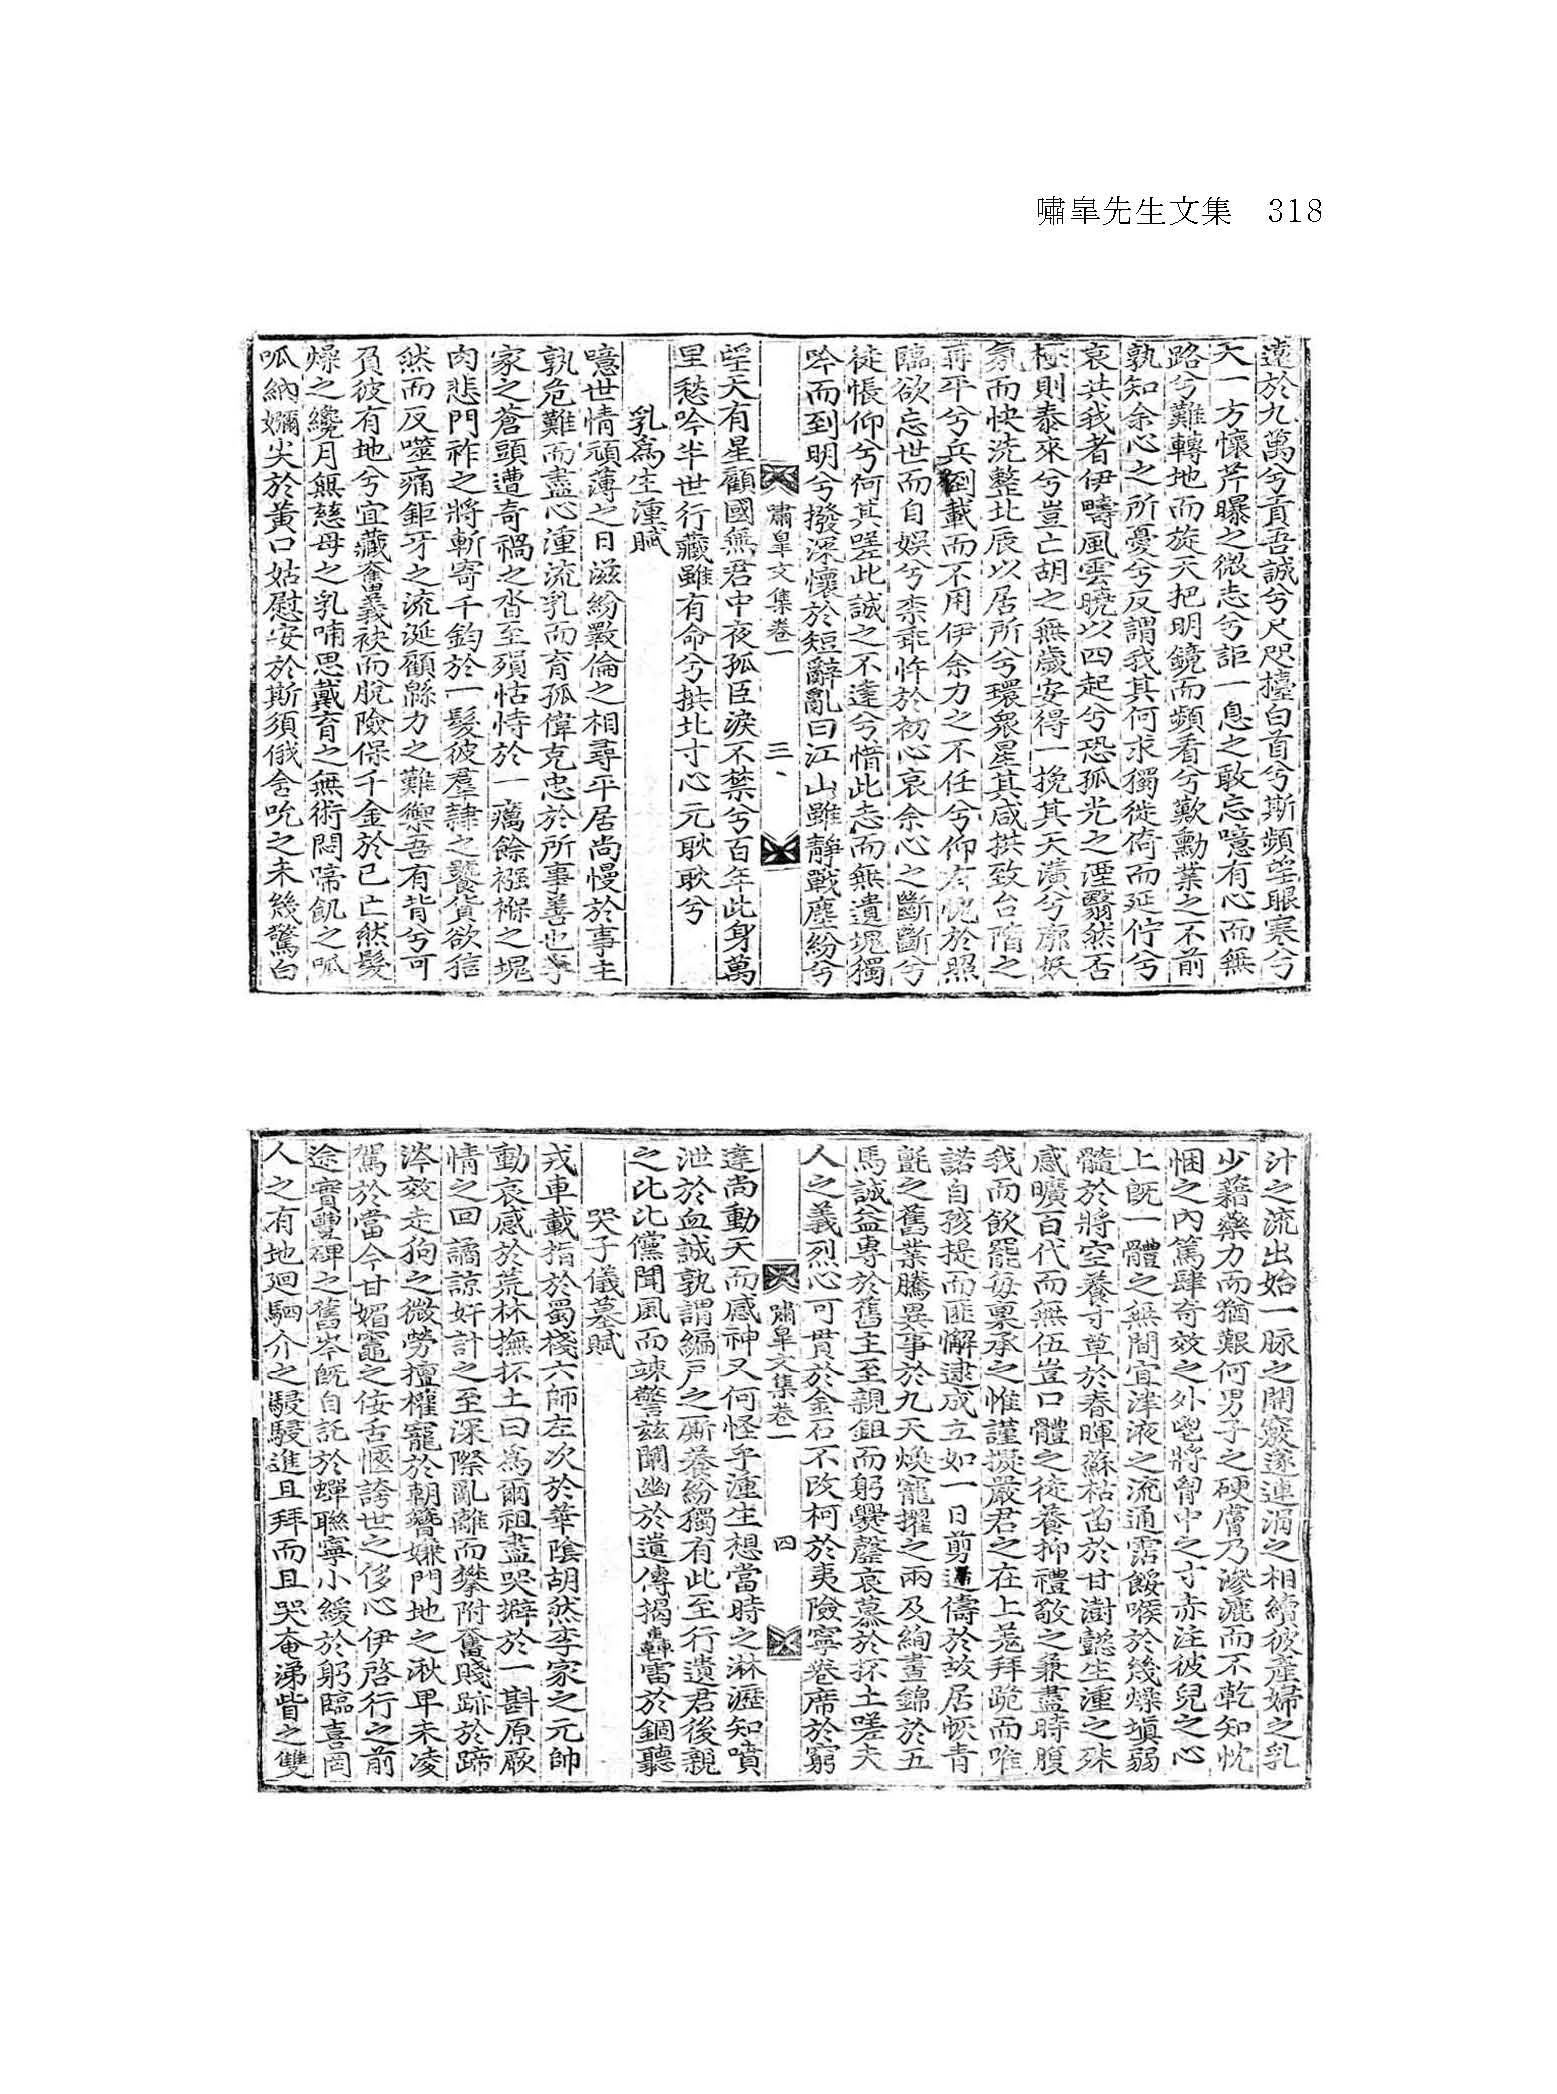 嘯皐先生文集 318
遠於九萬兮貢吾誠兮尺咫擡白首兮斯頻望眼寒兮
天一方懷芹曝之微志兮詎一息之敢忘噫有心而無
路兮難轉地而旋天把明鏡而頻看兮歎勳業之不前
孰知余心之所憂兮反謂我其何求獨徙倚而延佇兮
哀共我者伊疇風雲曉以四起兮恐孤光之湮翳然否
極則泰來兮豈亡胡之無歲安得一挽其天潢兮廓妖
氛而快洗整北辰以居所兮環衆星其咸拱致台階之
再平兮兵倒載而不用伊余力之不任兮仰有愧於照
臨欲忘世而自娛兮柰乖忤於初心哀余心之斷斷兮
徒悵仰兮何其嗟此誠之不達兮惜此志而無遺塊獨
吟而到明兮撥深懷於短辭亂曰江山雖靜戰塵紛兮
嘯皐文集卷一 三
望天有星顧國無君中夜孤臣淚不禁兮百年此身萬
里愁吟半世行藏雖有命兮拱北寸心元耿耿兮
乳爲生湩賦
噫世情頑薄之日滋紛斁倫之相尋平居尚慢於事主
孰危難而盡心湩流乳而育孤偉克忠於所事善也李
家之蒼頭遭奇禍之沓至殞怙恃於一癘餘襁褓之塊
肉悲門祚之將斬寄千鈞於一髮彼羣隷之饕貨欲狺
然而反噬痛鉅牙之流涎顧緜力之難禦吾有背兮可
負彼有地兮宜藏奮義袂而脫險保千金於已亡然髮
燥之纔月無慈母之乳哺思戴育之無術悶啼飢之呱
呱納嬭尖於黃口姑慰安於斯須俄舍吮之未幾驚白
汁之流出始一脉之開竅遂連涓之相續彼產婦之乳
少藉藥力而猶艱何男子之硬膚乃滲漉而不乾知忱
悃之內篤肆奇效之外鬯將胷中之寸赤注彼兒之心
上旣一體之無間宜津液之流通霑餒喉於幾燥塡弱
髓於將空養寸草於春暉蘇枯苗於甘澍懿生湩之殊
感曠百代而無伍豈口體之徒養抑禮敬之兼盡時腹
我而飮罷每稟承之惟謹擬嚴君之在上羌拜跪而唯
諾自孩提而匪懈逮成立如一日剪蓬儔於故居恢青
氈之舊業騰異事於九天煥寵擢之兩及絢晝錦於五
馬誠益專於舊主至親鉏而躬爨罄哀慕於抔土嗟夫
人之義烈心可貫於金石不改柯於夷險寧卷席於窮
嘯皐文集卷一 四
達尚動天而感神又何怪乎湩生想當時之淋瀝知噴
泄於血誠孰謂編戶之廝養紛獨有此至行遺君後親
之比比儻聞風而竦警玆闡幽於遺傳揭轟雷於錮聽
哭子儀墓賦
戎車載指於蜀棧六師左次於華陰胡然李家之元帥
動哀感於荒林撫抔土曰爲爾祖盡哭擗於一斟原厥
情之回譎諒奸計之至深際亂離而攀附奮賤跡於蹄
涔效走狗之微勞擅權寵於朝簪嫌門地之湫卑未凌
駕於當今甘媚竈之佞舌愜誇世之侈心伊啓行之前
途實豐碑之舊岑旣自託於蟬聯寧小緩於躬臨喜罔
人之有地廻駟介之駸駸進且拜而且哭奄涕眥之雙